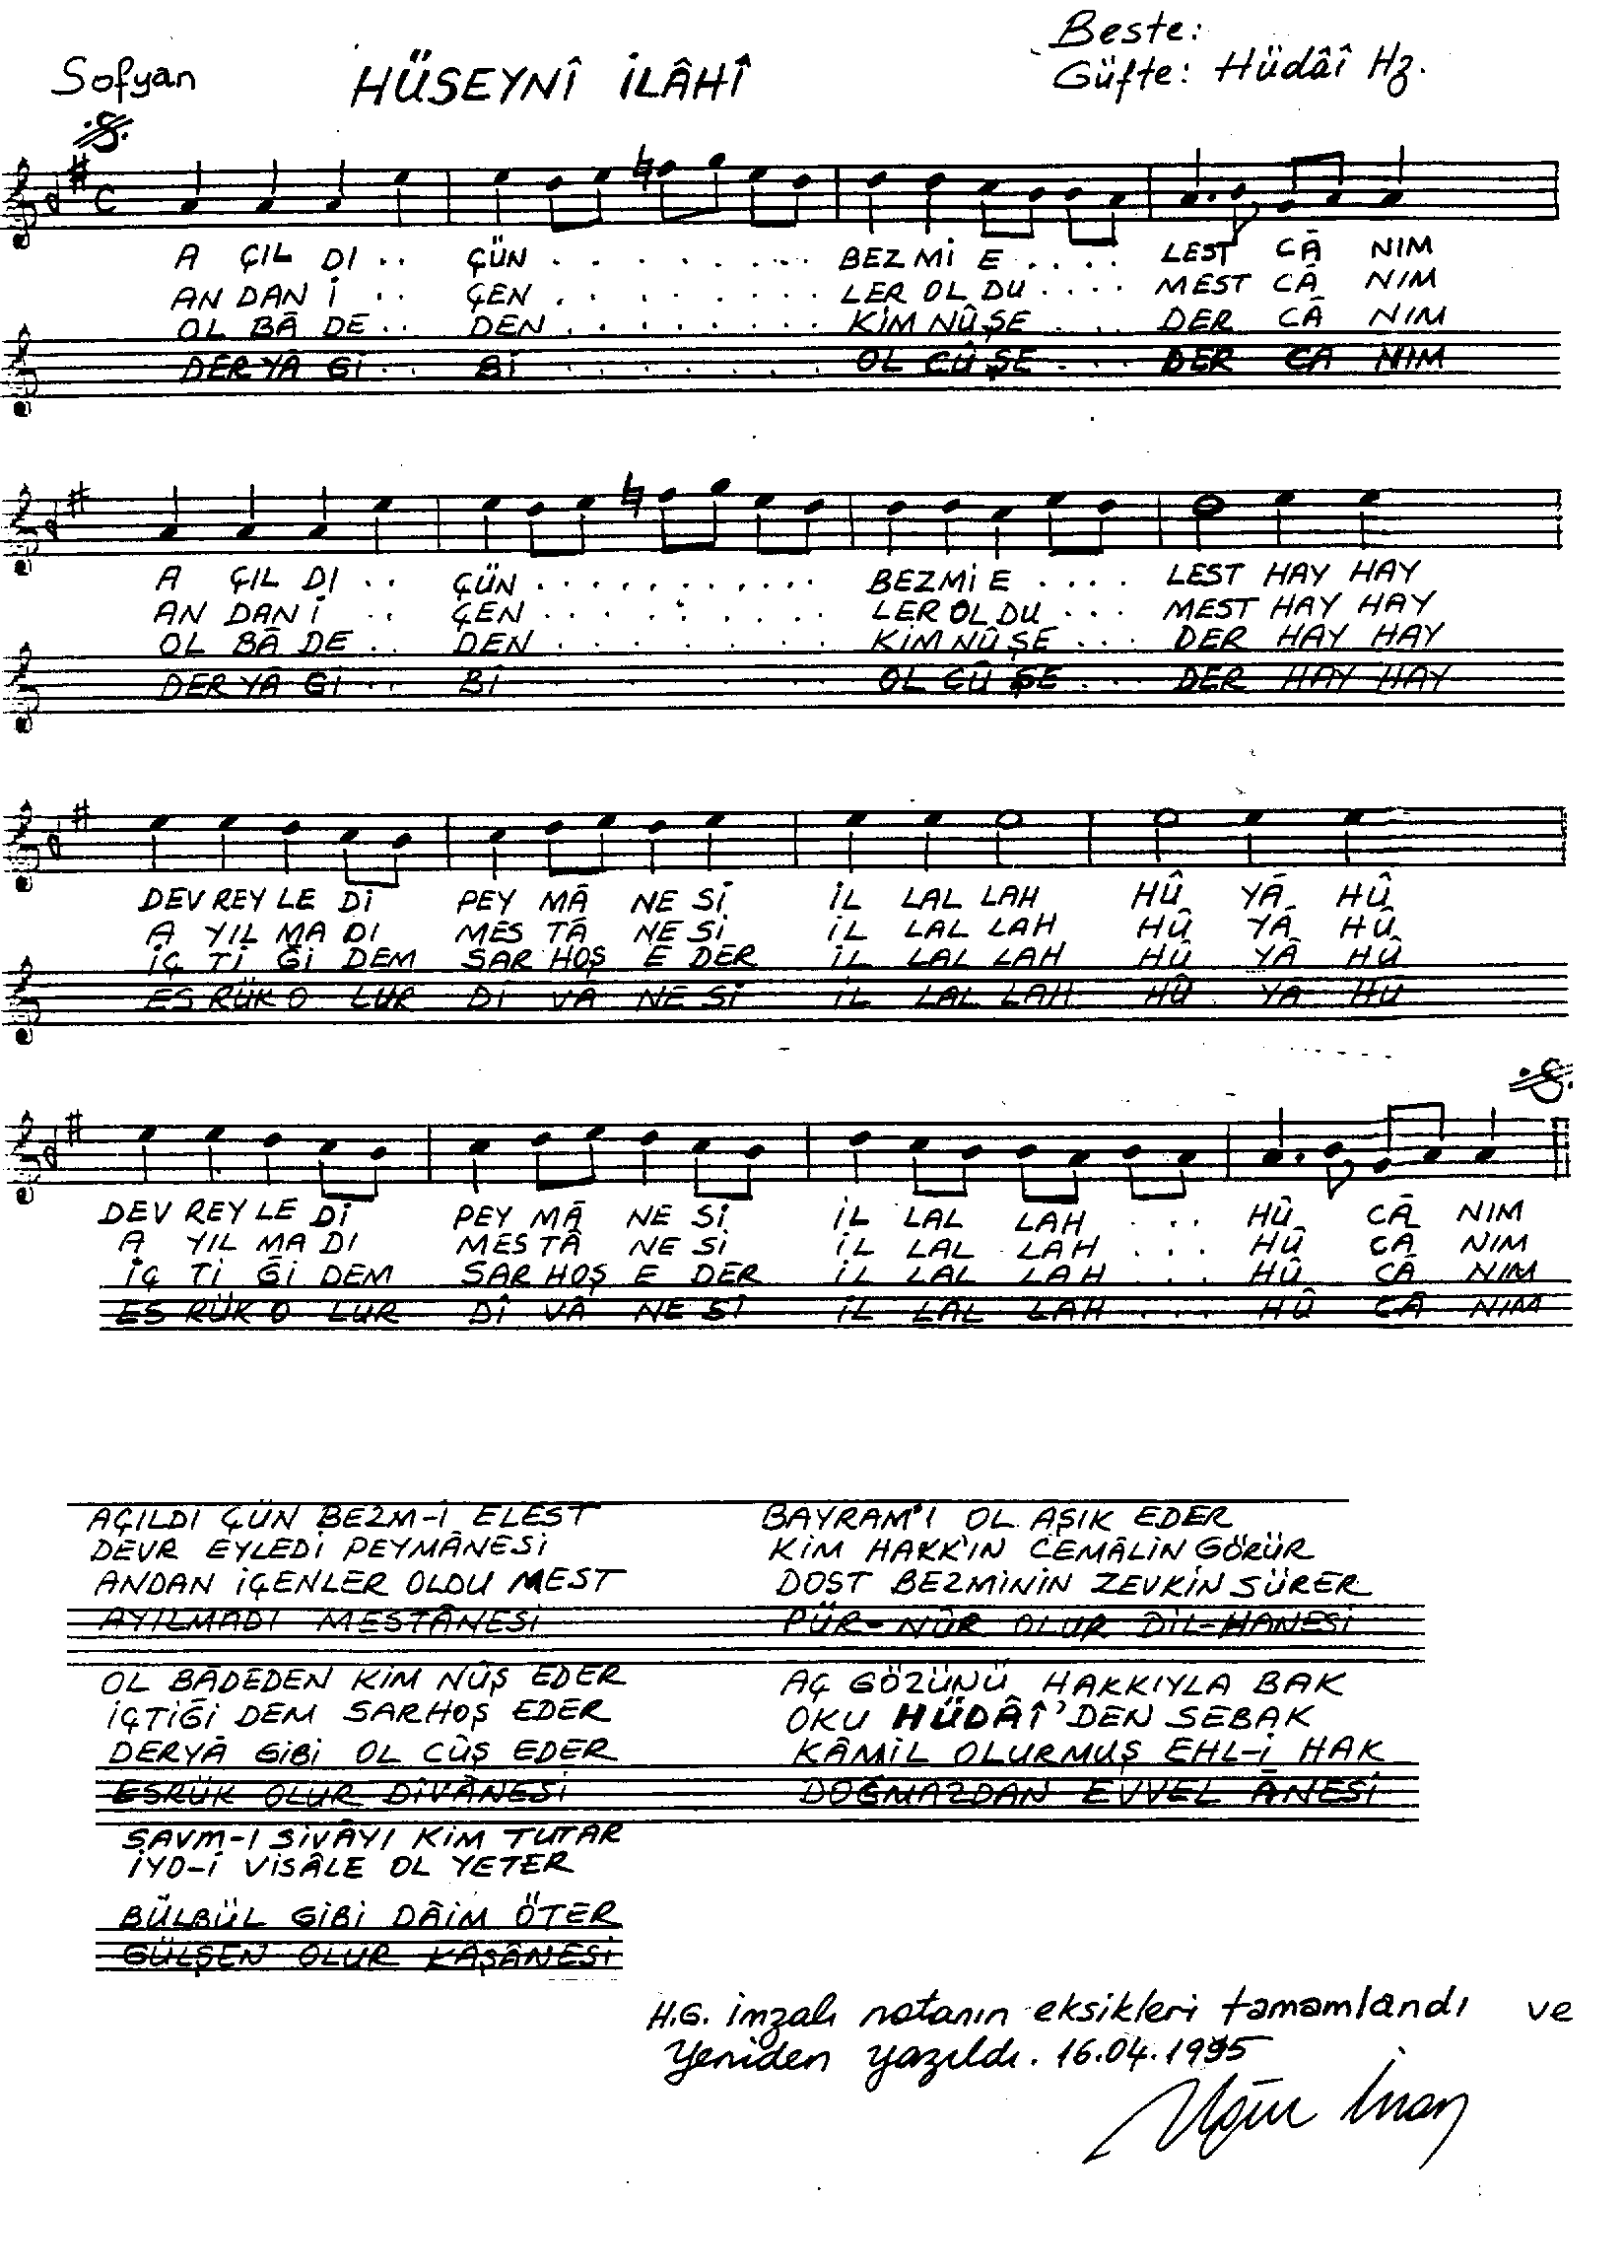 Beste:
Sofyan HÜSEYNÎ İLÂHÎ Güfte: Hüdâî Hz.
A ÇIL DI .. ÇÜN . . . . . . . . BEZ Mİ E .... LEST CÂ NIM
AN DAN İ .. ÇEN . . . . . . . . LER OL DU .... MEST CÂ NIM
OL BÂ DE .. DEN . . . . . . . . KİM NÛ ŞE .... DER CÂ NIM
DER YÂ Gİ .. Bİ . . . . . . . . OL CÛ ŞE .... DER CA NIM
A ÇIL DI .. ÇÜN . . . . . . . . . . . BEZ Mİ E .... LEST HAY HAY
AN DAN İ .. ÇEN . . . . . . . . . LER OL DU ... MEST HAY HAY
OL BÂ DE .. DEN . . . . . . . . KİM NÛ ŞE ... DER HAY HAY
DER YÂ Gİ .. Bİ OL CÛ ŞE ... DER HAY HAY
DEV REY LE Dİ PEY MÂ NE Sİ İL LAL LAH HÛ YÂ HÛ
A YIL MA DI MES TÂ NE Sİ İL LAL LAH HÛ YÂ HÛ
İÇ Tİ Ğİ DEM SAR HOŞ E DER İL LAL LAH HÛ YÂ HÛ
ES RÜK O LUR Dİ VÂ NE Sİ İL LAL LAH HÛ YA HU
DEV REY LE Dİ PEY MÂ NE Sİ İL LAL LAH ... HÛ CÂ NIM
A YIL MA DI MES TÂ NE Sİ İL LAL LAH ... HÛ CÂ NIM
İÇ Tİ Ğİ DEM SAR HOŞ E DER İL LAL LAH ... HÛ CÂ NIM
ES RÜK O LUR DÎ VÂ NE Sİ İL LAL LAH ... HÛ CÂ NIM
AÇILDI ÇÜN BEZM-İ ELEST
DEVR EYLEDİ PEYMÂNESİ
ANDAN İÇENLER OLDU MEST
AYILMADI MESTÂNESİ
OL BÂDEDEN KİM NÛŞ EDER
İÇTİĞİ DEM SARHOŞ EDER
DERYÂ GİBİ OL CÛŞ EDER
ESRÜK OLUR DİVÂNESİ
SAVM-I SİVÂYI KİM TUTAR
İYD-İ VİSÂLE OL YETER
BÜLBÜL GİBİ DÂİM ÖTER
GÜLŞEN OLUR KÂŞÂNESİ
BAYRAM'I OL AŞIK EDER
KİM HAKK'IN CEMÂLİN GÖRÜR
DOST BEZMİNİN ZEVKİN SÜRER
PÜR-NÛR OLUR DİL-HANESİ
AÇ GÖZÜNÜ HAKKIYLA BAK
OKU HÜDÂÎ'DEN SEBAK
KÂMİL OLURMUŞ EHL-İ HAK
DOĞMAZDAN EVVEL ÂNESİ
H.G. İmzalı notanın eksikleri tamamlandı ve
Yeniden yazıldı. 16.04.1995
Uğur İnan